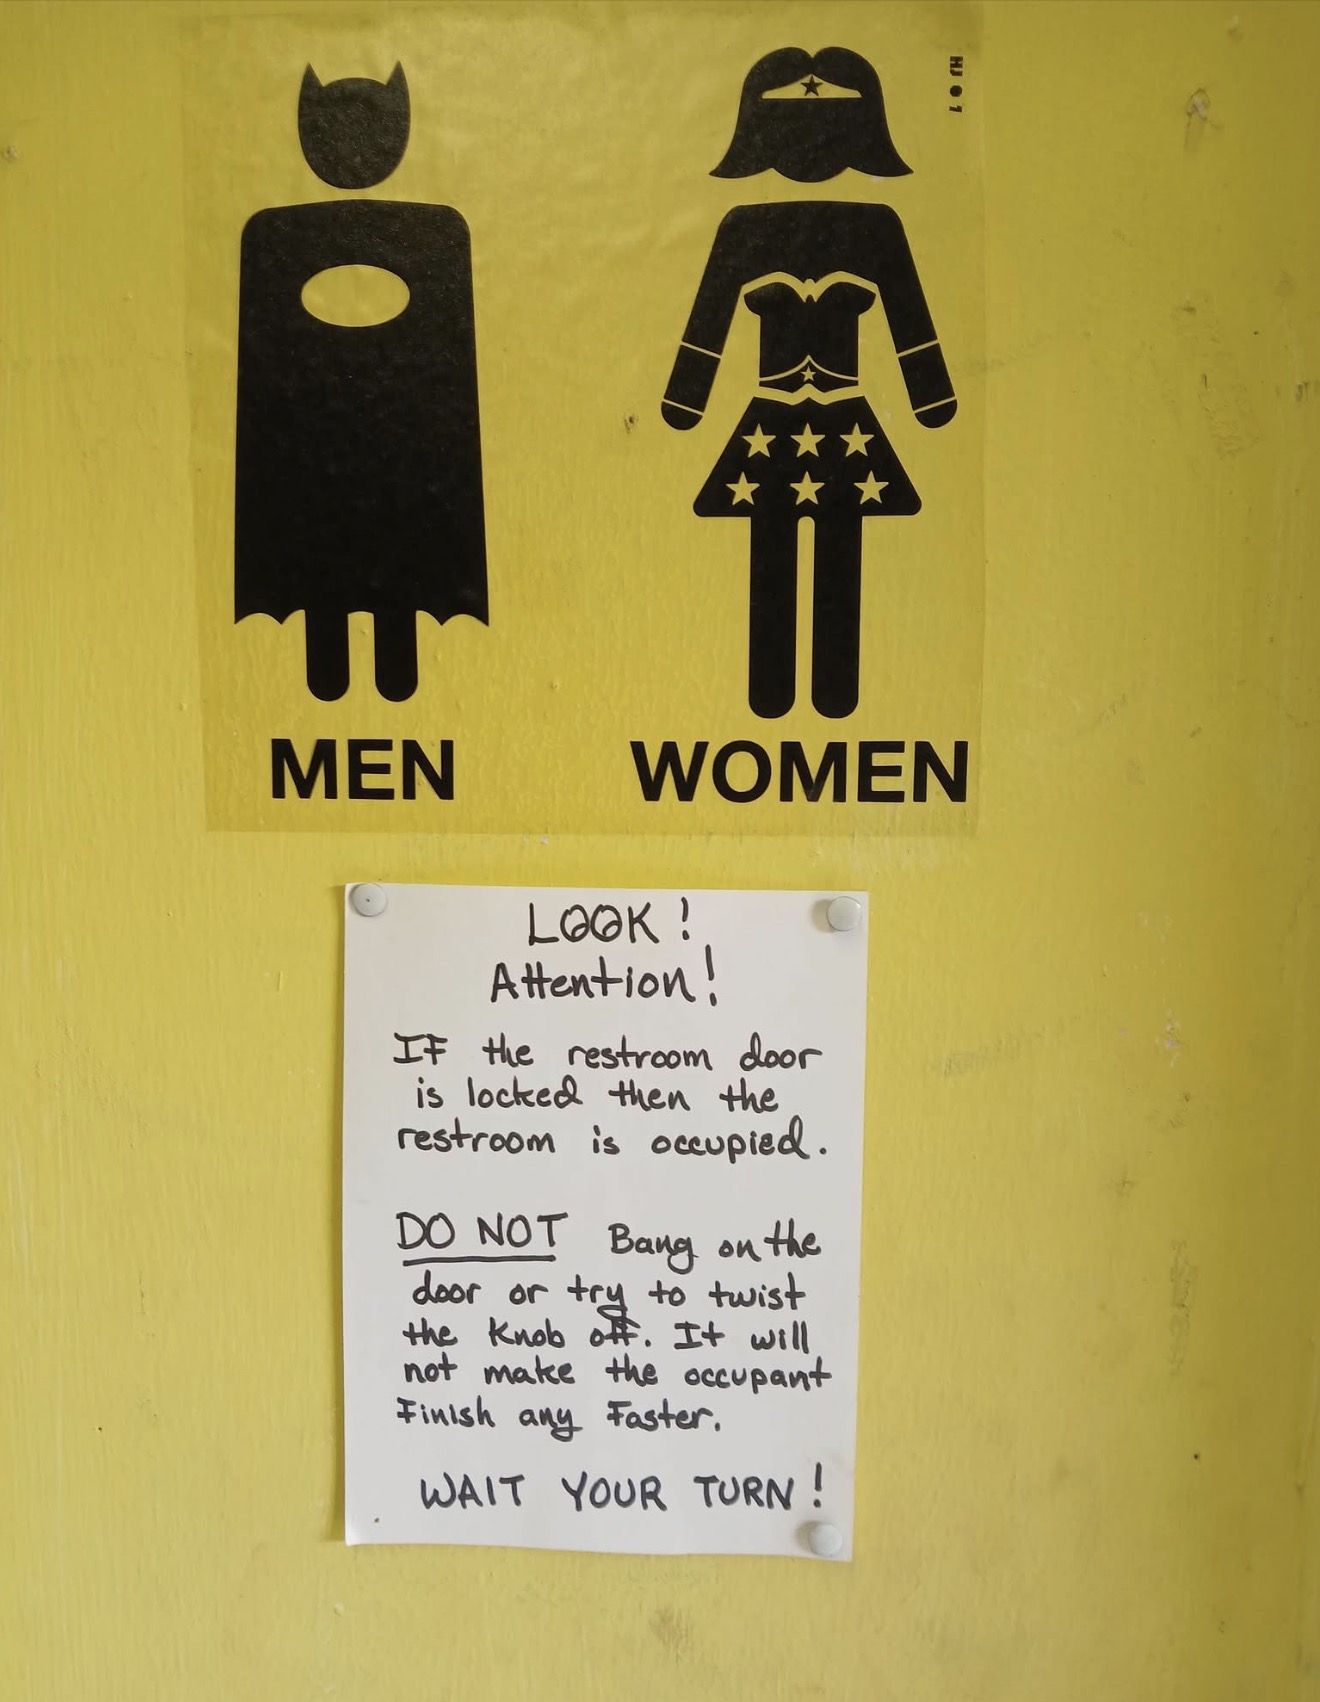 HJ 01
MEN WOMEN
LOOK!
Attention!
IF the restroom door
is locked then the
restroom is occupied.
DO NOT Bang on the
door or try to twist
the Knob off. It will
not make the occupant
Finish any Faster.
WAIT YOUR TURN!